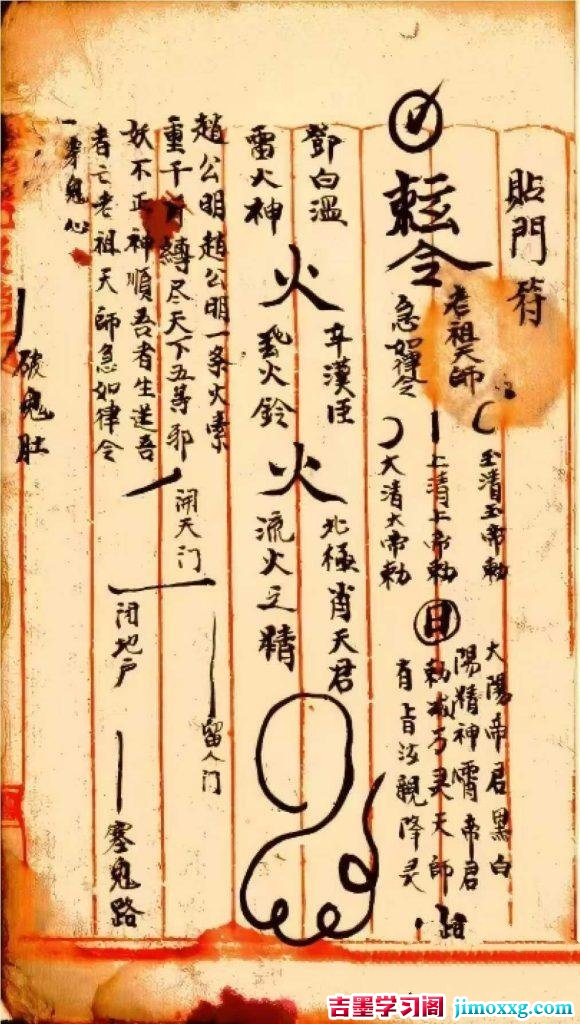 貼門符
令
老祖天師
急如律令
玉清玉帝勅
上清上帝勅
大清大帝勅
日
大陽帝君黑白
陽精神霄帝君
勅 灵天師
有旨 親降灵
鄧白溫
雷火神
火
辛漢臣
火鈴
火
北極肖天君
流火之精
趙公明趙公明一条火索
重千斤縛尽天下五等邪
妖不正神順吾者生逆吾
者亡老祖天師急如律令
開天门
闭地户
留人门
塞鬼路
一穿鬼心
破鬼肚
吉墨学习阁 jimoxxg.com